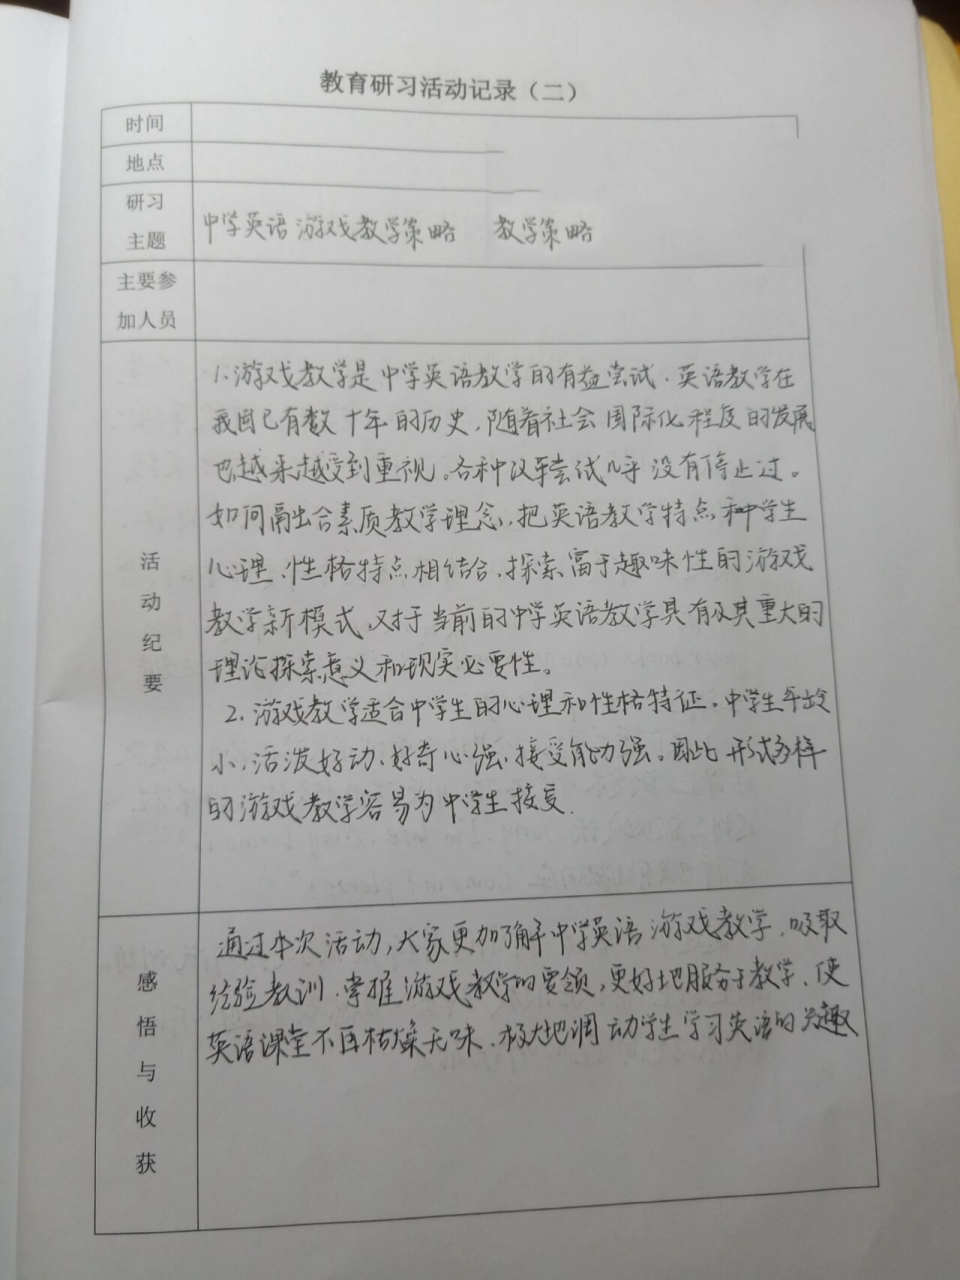 教育研习活动记录（二）
时间
地点
研习
主题
中学英语游戏教学策略 教学策略
主要参
加人员
活动纪要
1.游戏教学是中学英语教学的有益尝试.英语教学在
我国已有数十年的历史,随着社会国际化程度的发展
也越来越受到重视。各种改革尝试几乎没有停止过。
如何融合素质教学理念,把英语教学特点和中学生
心理、性格特点相结合,探索富于趣味性的游戏
教学新模式,对于当前的中学英语教学具有及其重大的
理论探索意义和现实必要性。
2.游戏教学适合中学生的心理和性格特征。中学生年龄
小,活泼好动、好奇心强、接受能力强。因此形式多样
的游戏教学容易为中学生接受.
感悟与收获
通过本次活动,大家更加了解中学英语游戏教学、吸取
经验教训、掌握游戏教学的要领,更好地服务于教学、使
英语课堂不再枯燥无味、极大地调动学生学习英语的兴趣